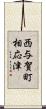 西与賀町
相応津